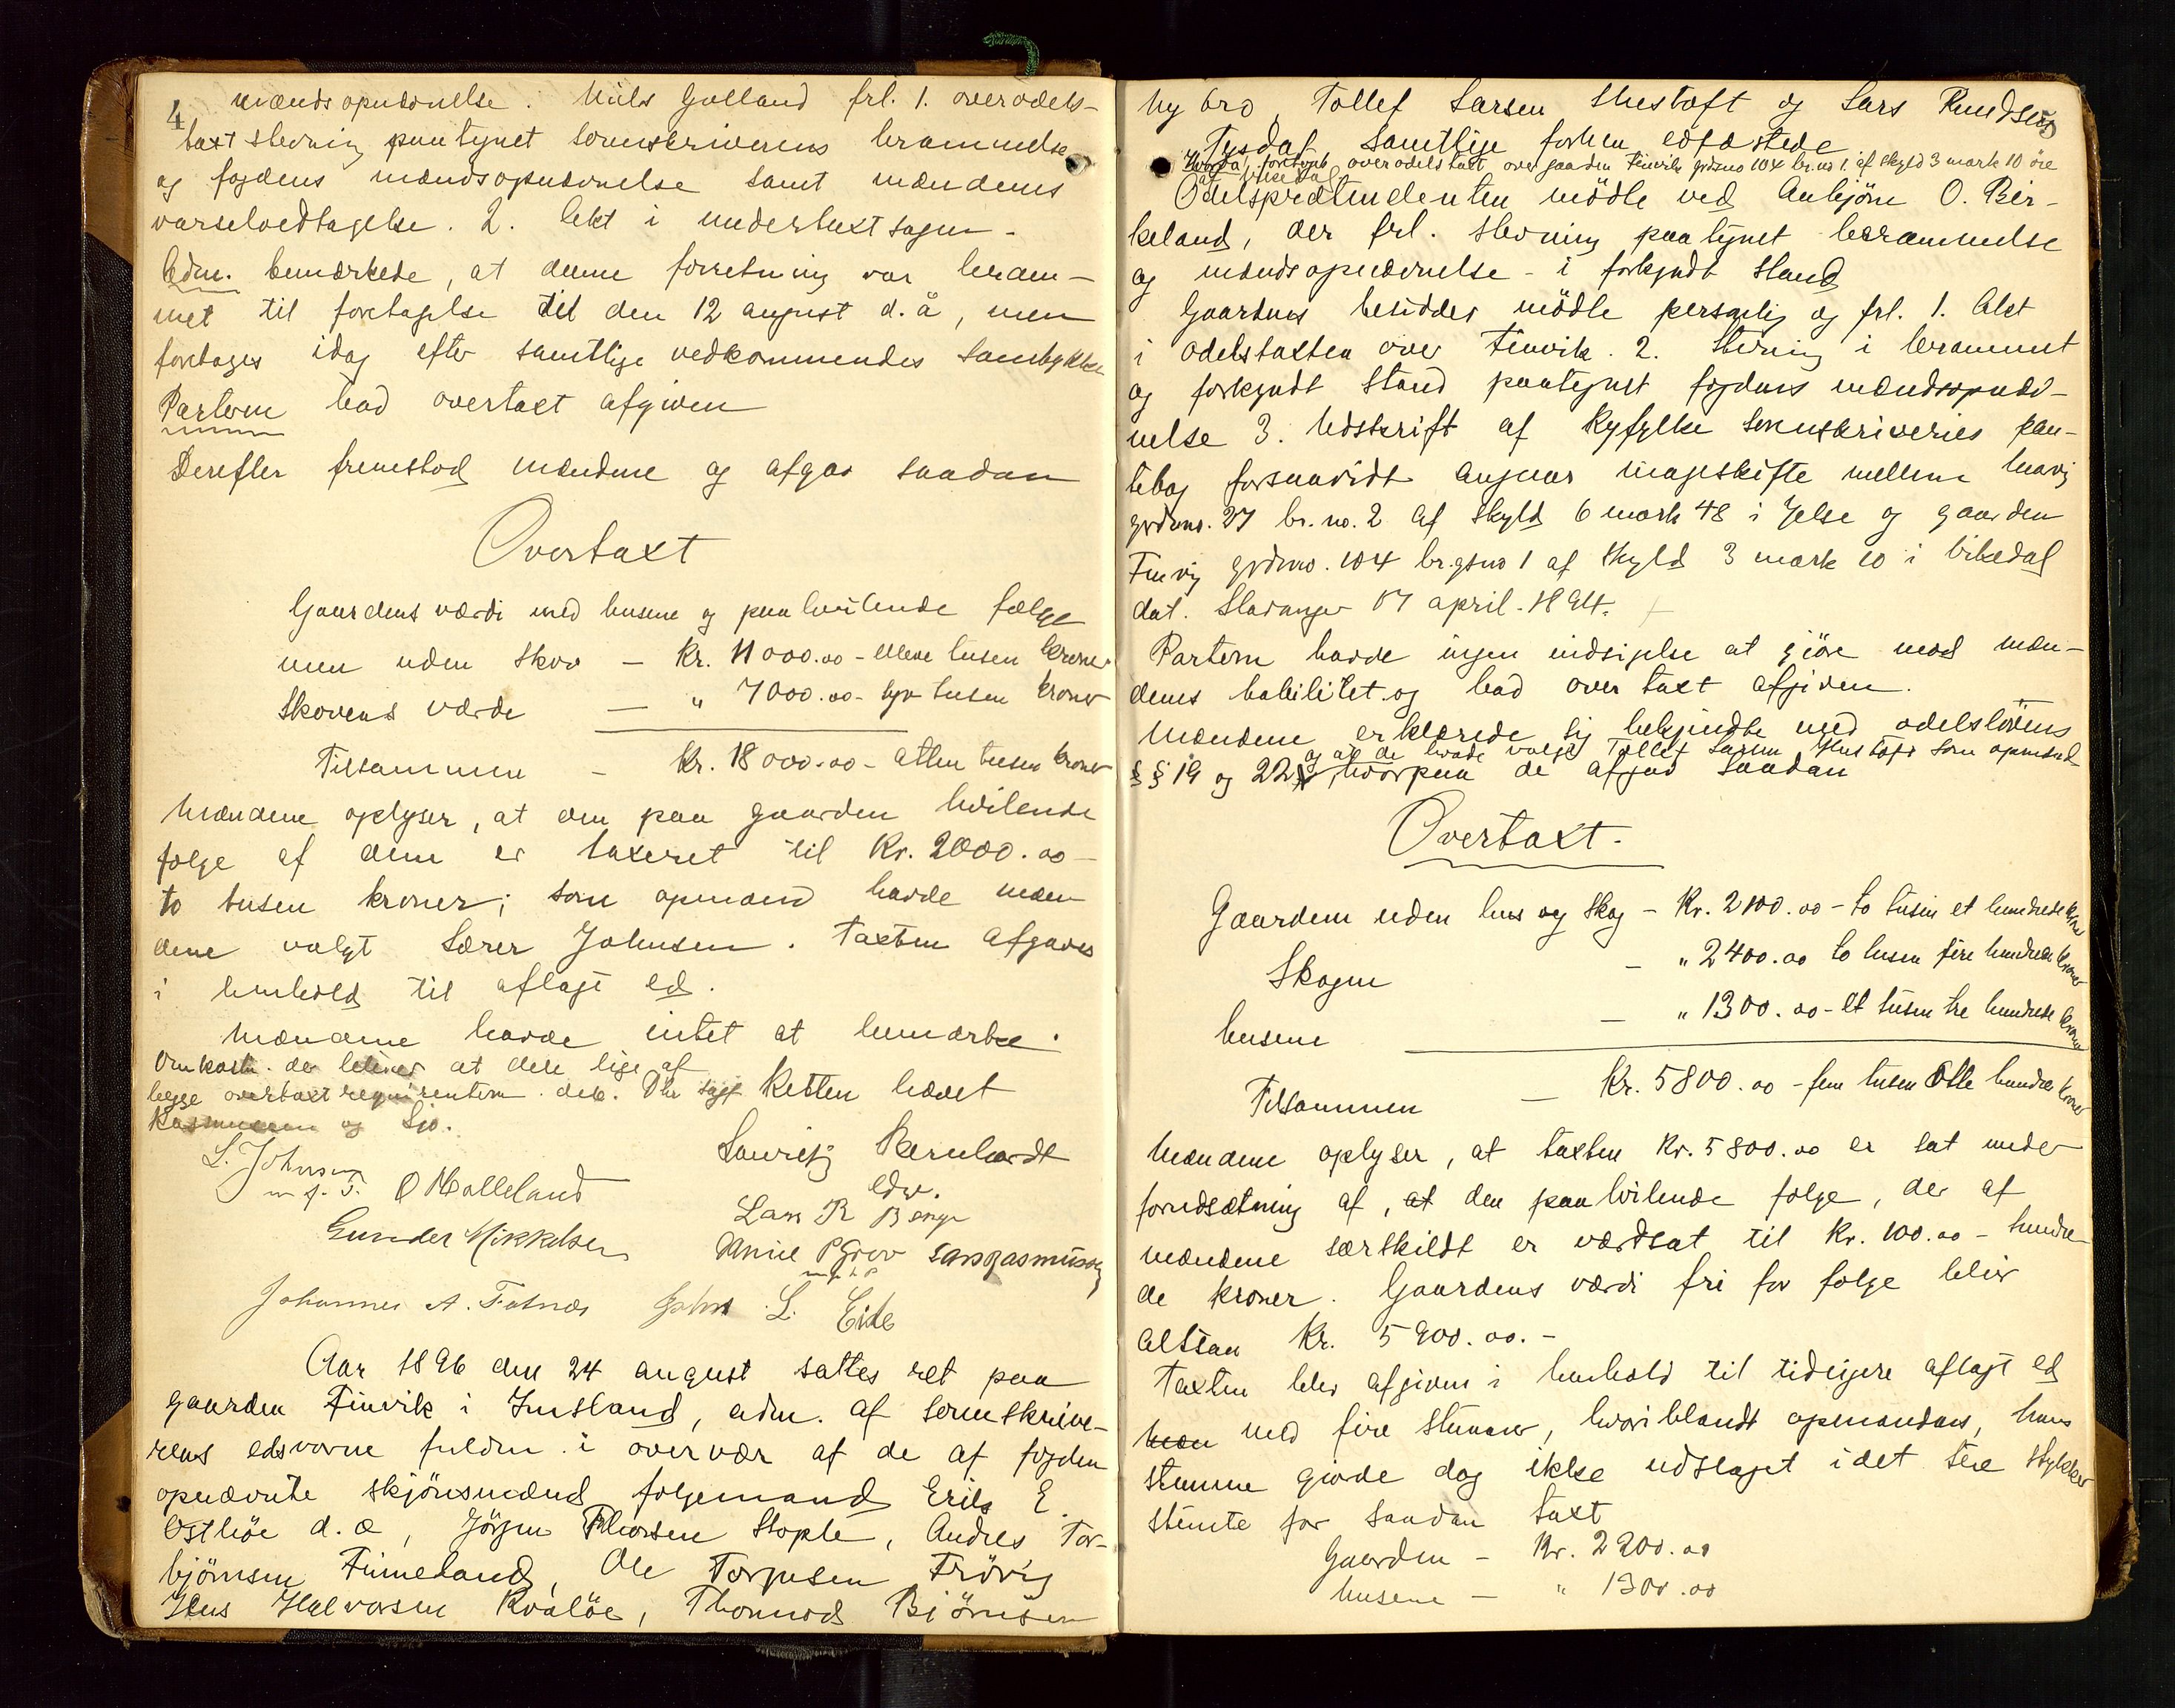 4
mændsopnævnelse. Niels Gulland frl. 1. overodels-
taxt stevning paategnet sorenskriverens berammelse
og fogdens mændsopnævnelse samt mændenes
varselvedtagelse. 2. Akt i undertaxtsagen.
Adm. bemærkede, at denne forretning var beram-
met til foretagelse til den 12 august d. å, men
foretages idag efter samtlige vedkommendes samtykke
Parterne bad overtaxt afgiven
Derefter fremstod mændene og afgav saadan
Overtaxt
Gaardens værdi med husene og paahvilende følge
men uden skov – Kr. 11000.00 – elleve tusen kroner
Skovens værde – " 7000.00 – syv tusen kroner
Tilsammen – Kr. 18000.00 – atten tusen kroner
Mændene oplyser, at den paa gaarden hvilende
følge af dem er taxeret til Kr. 2000.00 –
to tusen kroner; som opmand havde mæn
dene valgt Lærer Johnsen. Taxten afgaves
i henhold til aflagt ed.
Mændene havde intet at bemærke.
Omkostn. der bliver at dele lige af
begge overtaxtrequirenterne. deb. Ole Retten hævet
Rasmussen og
L. Johnsen
m. f. P. O Halleland
Lauritz Bernhardt
edv.
Gunder Mikkelsen
Lars R Berge
P Grov Lars Rasmussen
Johannes A. Fatnæs John L. Eide
Aar 1896 den 24 august sattes ret paa
gaarden Finvik i Imsland, adm. af sorenskrive-
rens edsvorne fuldm. i overvær af de af fogden
opnævnte skjönsmænd følgemand Erik E
Østhöe d. æ, Jörgen Stople, Andres Tor-
björnsen Finneland, Ole Torgersen Frövig
Jens Halvorsen Kvalöe, Thormod Björnsen
5
Nybro, Tollef Larsen Hustoft og Lars Knudsen
Tysdal, samtlige forhen edfæstede
Hvorda, foretoges overodelstaxt over gaarden Finvik grdsno 104 br.no 1 af skyld 3 mark 10 öre
af Vikedal
Odelsprætendenten mödte ved Anbjörn O. Bir-
keland, der frl. stevning paategnet berammelse
og mændsopnævnelse i forkyndt stand
Gaardens besidder mödte personlig og frl. 1. Akt
i odelstaxten over Finvik. 2. Stevning i berammet
og forkyndt stand paategnet fogdens mændsopnæv-
nelse 3. Udskrift af Ryfylke sorenskriveries pan-
tebog forsaavidt angaar mageskifte mellem
grdsno. 27 br. no. 2 af skyld 6 mark 48 i Jelse og gaarden
Finvig grdsno. 104 br.gsno 1 af skyld 3 mark 10 i Vikedal
dat. Stavanger 17 april 1894.
Parterne havde ingen indsigelse at gjöre mod mæn-
denes habilitet og bad overtaxt afgiven.
Mændene erklærede sig bekjendte med odelslovens
og at de havde valgt Tollef Larsen Hustoft som opmand
§§ 19 og 22, hvorpaa de afgav saadan
Overtaxt.
Gaarden uden hus og skog – Kr. 2100.00 – to tusen et hundrede kroner
Skogen – " 2400.00 to tusen fire hundrede kroner
husene – " 1300.00 – et tusen tre hundrede kroner
Tilsammen – Kr. 5800.00 – fem tusen otte hundre kroner
Mændene oplyser, at taxten Kr. 5800.00 er sat under
forudsætning af, at den paahvilende følge, der af
mændene særskildt er værdsat til Kr. 100.00 – hundre-
de kroner. Gaardens værdi fri for følge blir
altsaa Kr. 5900.00. –
Taxten blev afgiven i henhold til tidligere aflagt ed
med fire stemmer, hvoriblandt opmandens, hans
stemme gjorde dog ikke udslaget idet tre stykker
stemte for saadan taxt
Gaarden – Kr. 2200.00
husene – " 1300.00